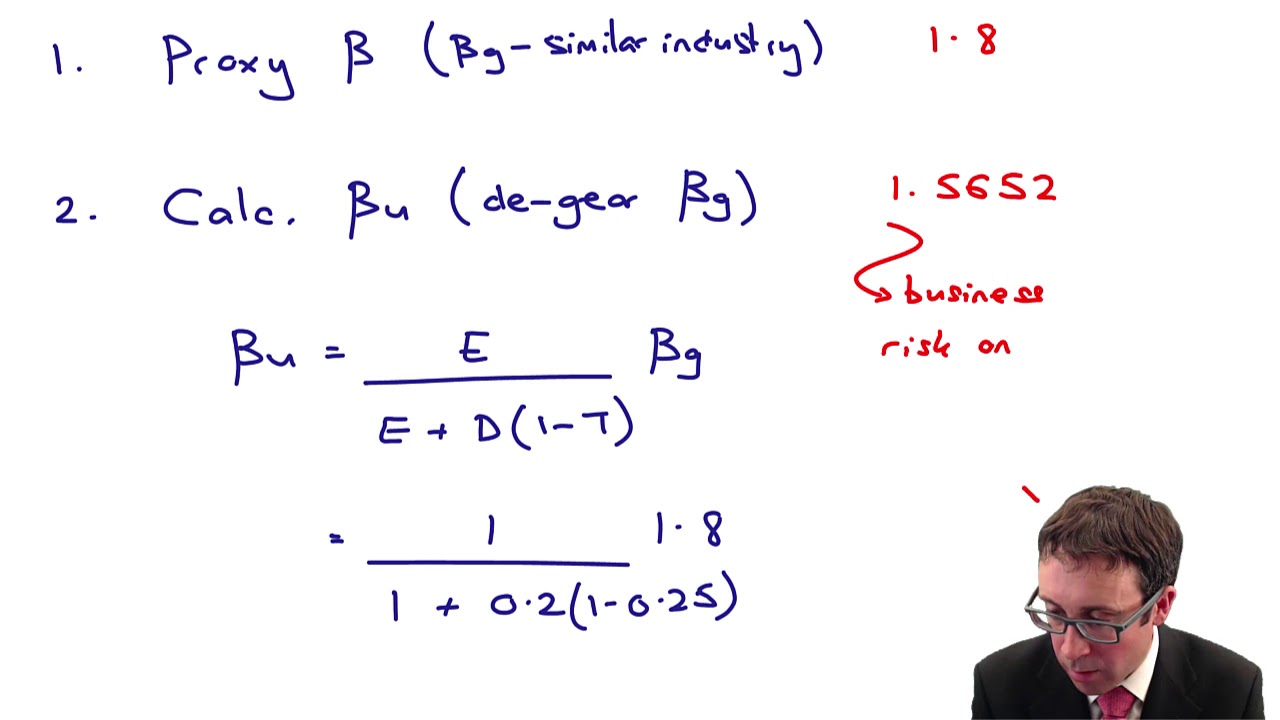 1. Proxy β (βg - similar industry) 1.8
2. Calc. βu (de-gear βg) 1.5652
business
risk on
βu = E βg
E + D(1-T)
= 1 1.8
1 + 0.2(1-0.25)